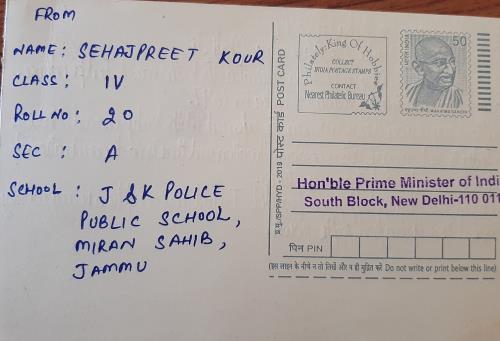 FROM
NAME: SEHAJPREET KOUR
CLASS: IV
ROLL NO: 20
SEC : A
SCHOOL : J & K POLICE
PUBLIC SCHOOL,
MIRAN SAHIB,
JAMMU
प्र.मु./SPP/HYD - 2019 पोस्ट कार्ड POST CARD
Philately: King Of Hobbies
COLLECT
INDIA POSTAGE STAMPS
CONTACT
Nearest Philatelic Bureau
50
भारत INDIA
महात्मा गाँधी MAHATMA GANDHI
Hon'ble Prime Minister of Indi
South Block, New Delhi-110 011
पिन PIN
(इस लाइन के नीचे न तो लिखें और न ही मुद्रित करें Do not write or print below this line)